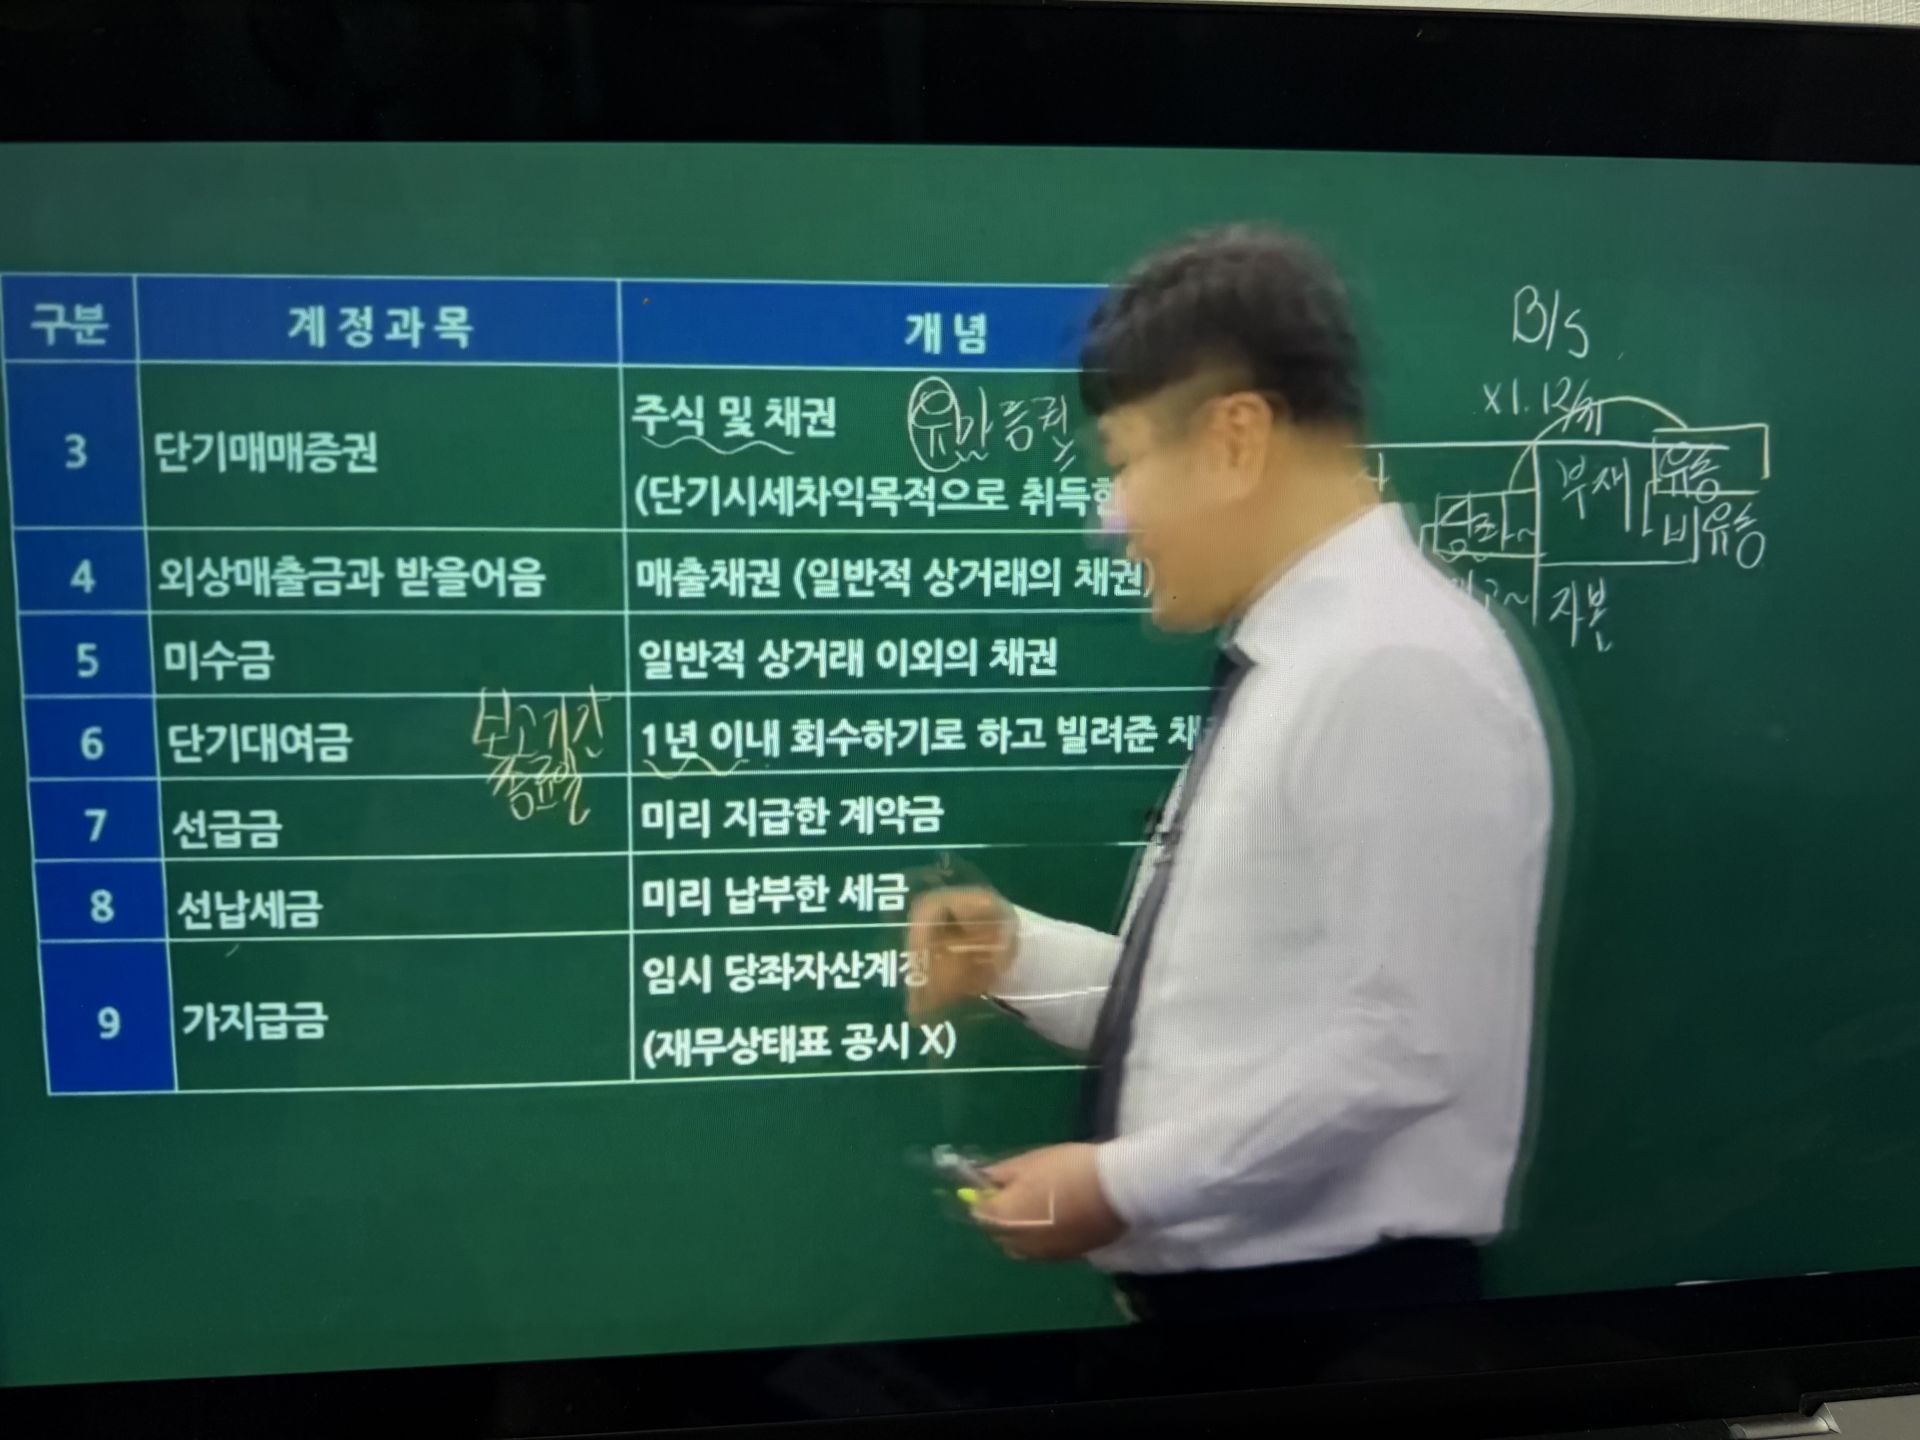 구분 계정과목 개념
3 단기매매증권 주식 및 채권 유가증권
(단기시세차익목적으로 취득한
4 외상매출금과 받을어음 매출채권 (일반적 상거래의 채권)
5 미수금 일반적 상거래 이외의 채권
6 단기대여금 보고기간 1년 이내 회수하기로 하고 빌려준 채
종료일
7 선급금 미리 지급한 계약금
8 선납세금 미리 납부한 세금
9 가지급금 임시 당좌자산계정
(재무상태표 공시 X)
B/S
X1. 12/31
부채 유동
당좌~ 비유동
자본